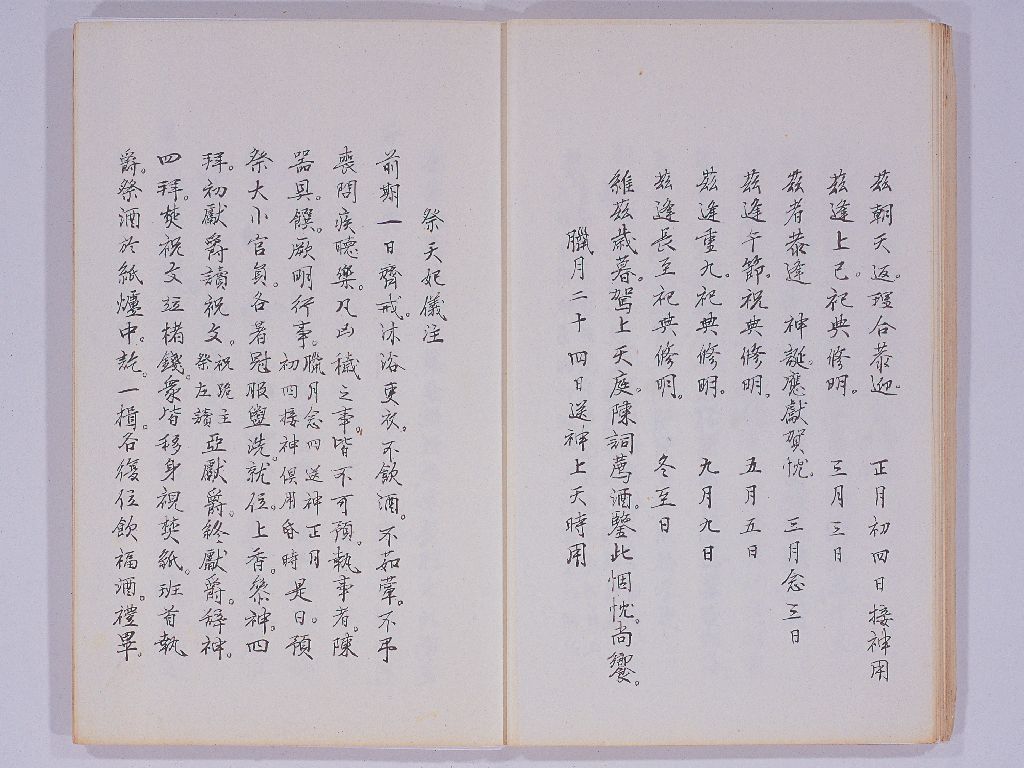 玆朝天返。理合恭迎。 正月初四日接神用
玆逢上巳。祀典修明。 三月三日
玆者恭逢 神誕應獻賀忱。 三月念三日
玆逢午節。祝典修明。 五月五日
玆逢重九。祀典修明。 九月九日
玆逢長至祀典修明。 冬至日
維玆歲暮。駕上天庭。陳詞薦酒。鑒此悃忱。尚饗。
臘月二十四日送神上天時用
祭天妃儀注
前期一日齊戒。沐浴更衣。不飲酒。不茹葷。不弔
喪問疾聽樂。凡凶穢之事。皆不可預。執事者。陳
器具。饌。厥明行事。臘月念四送神正月初四接神俱用昏時是日。預
祭大小官員。各著冠服盥洗。就位。上香。祭神。四
拜。初獻爵讀祝文。祝跪主祭左讀亞獻爵。終獻爵。辞神。
四拜。焚祝文竝楮錢。衆皆移身視焚紙。班首執
爵。祭酒於紙爐中。訖。一揖。各復位飲福酒。禮畢。